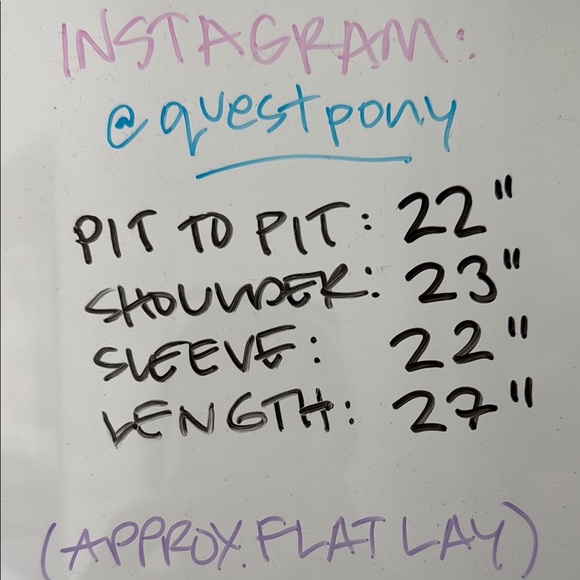 INSTAGRAM:
@questpony
PIT TO PIT: 22"
SHOULDER: 23"
SLEEVE: 22"
LENGTH: 27"
(APPROX. FLAT LAY)